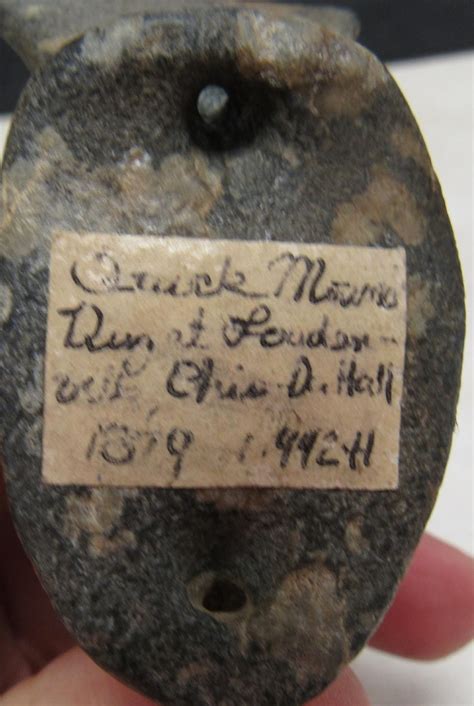 Quick Mound
Dug at Louden-
ville, Ohio D. Hall
1879 1.442H